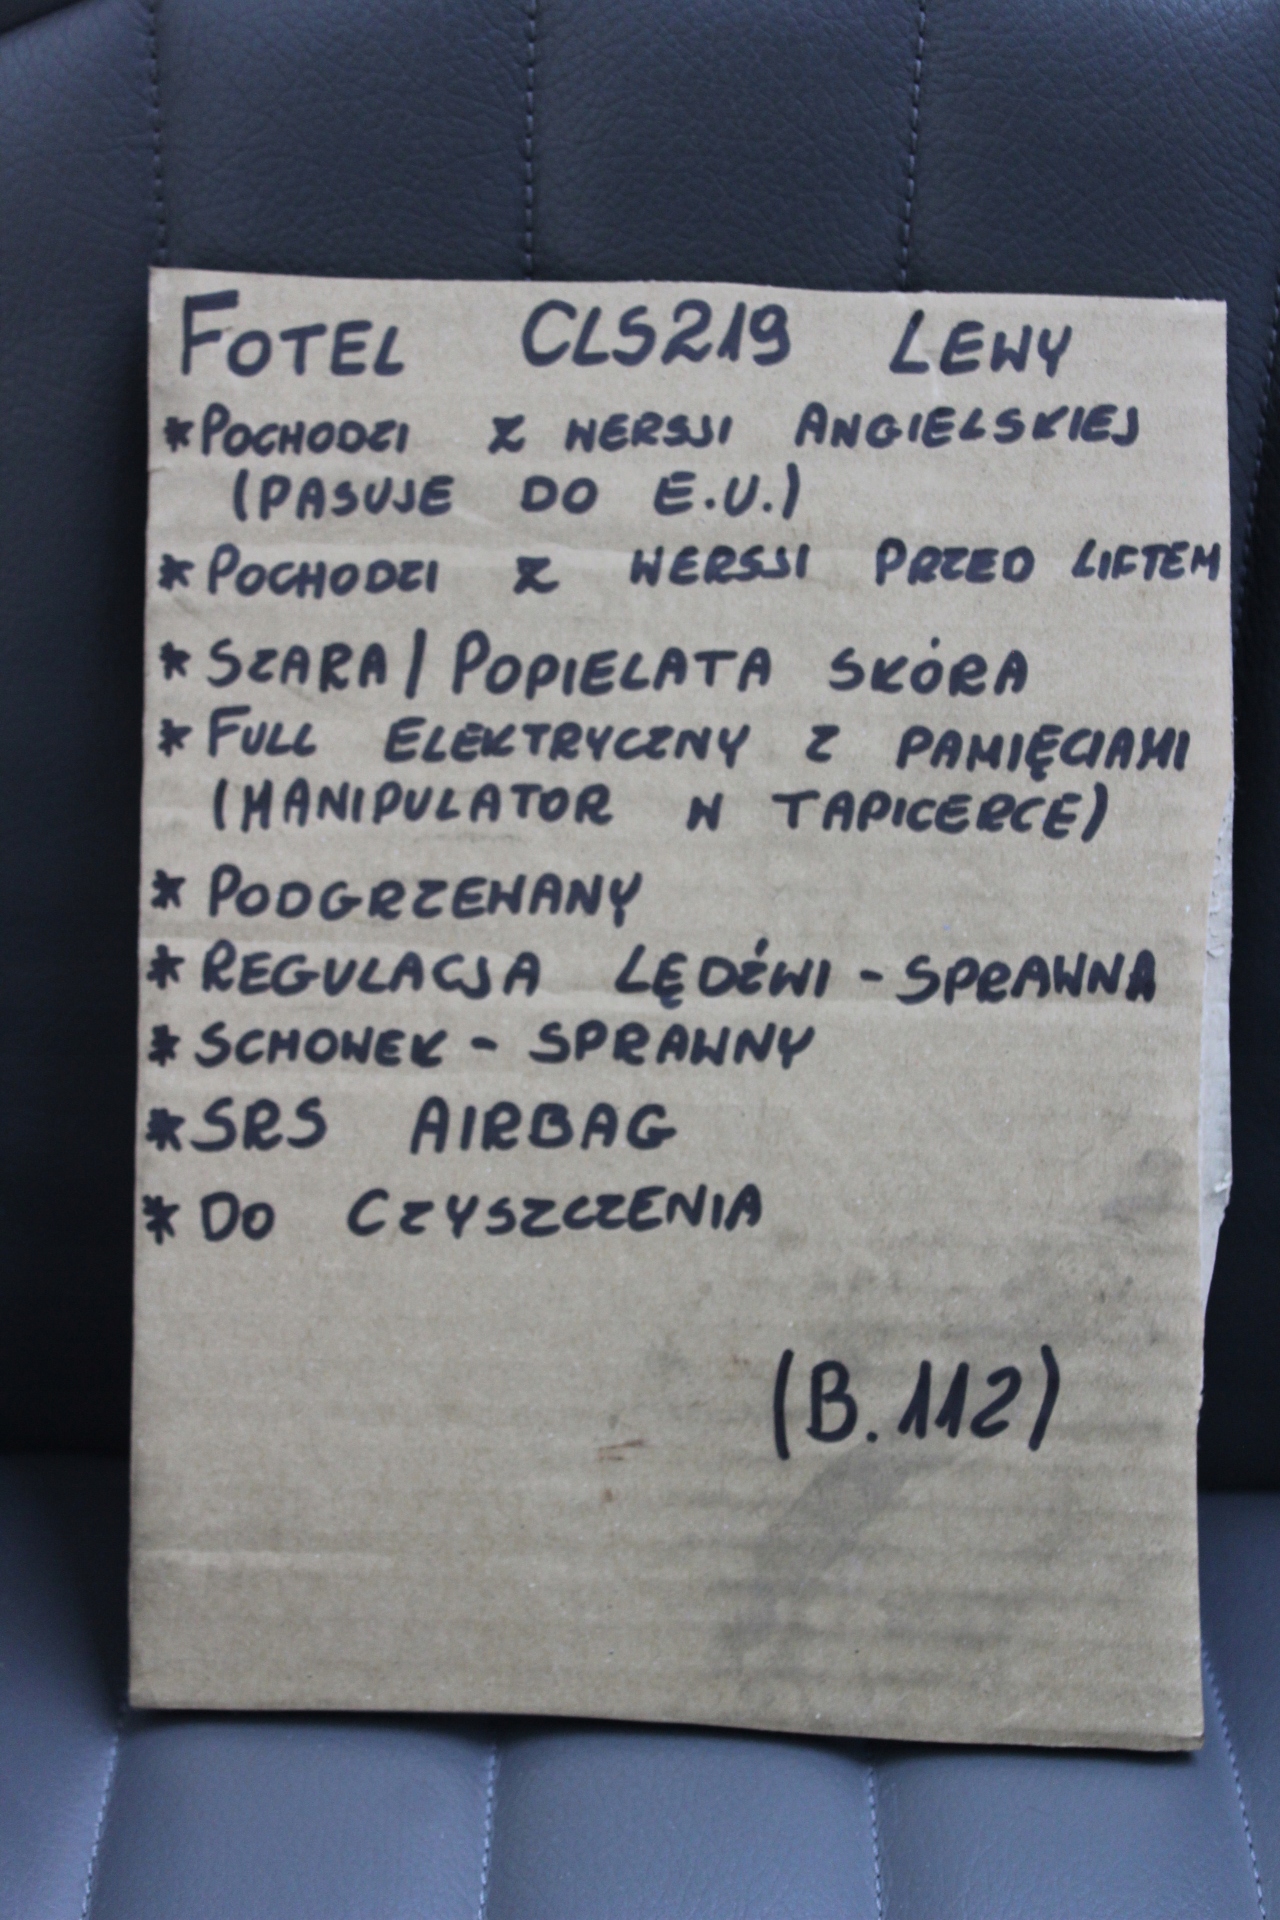 FOTEL CLS219 LEWY
*POCHODZI Z WERSJI ANGIELSKIEJ
(PASUJE DO E.U.)
*POCHODZI Z WERSJI PRZED LIFTEM
*SZARA/POPIELATA SKÓRA
*FULL ELEKTRYCZNY Z PAMIĘCIAMI
(MANIPULATOR W TAPICERCE)
*PODGRZEWANY
*REGULACJA LĘDŹWI - SPRAWNA
*SCHOWEK - SPRAWNY
*SRS AIRBAG
*DO CZYSZCZENIA
(B.112)